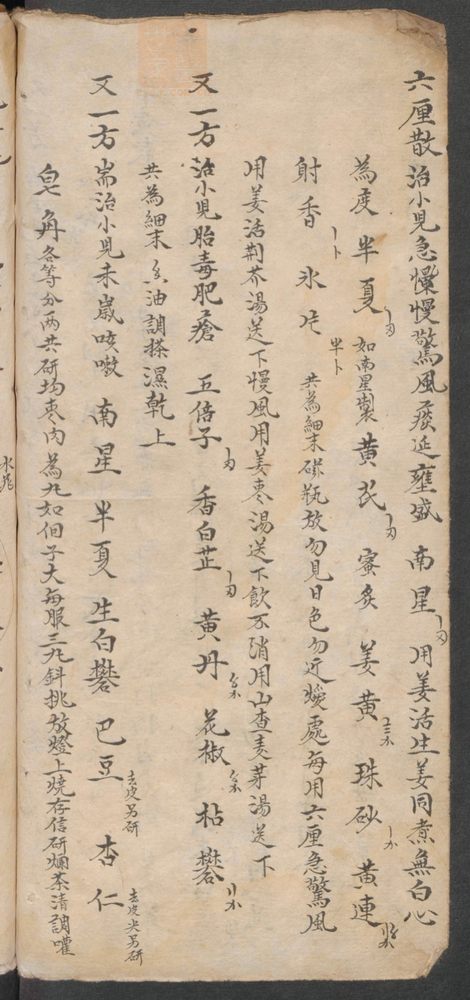 六厘散 治小兒急慢慢驚風痰延壅盛 南星 用姜活生姜同煮無白心
為度 半夏 如南星製 黄芪 蜜炙 姜黄 珠砂 黄連
射香 氷片 共為細末磁瓶放勿見日色勿近煖處每用六厘急驚風
用姜活荆芥湯送下慢風用姜枣湯送下飲不消用山查麦芽湯送下
又一方 治小兒胎毒肥瘡 五倍子 香白芷 黄丹 花椒 枯礬
共為細末 油調搽濕乾上
又一方 耑治小兒未歲咳嗽 南星 半夏 生白礬 巴豆 去皮另研 杏仁 去皮尖另研
皂角各等分两共研均枣肉為丸如佃子大每服三丸鋅挑放燈上燒存信研爛茶清調嚾